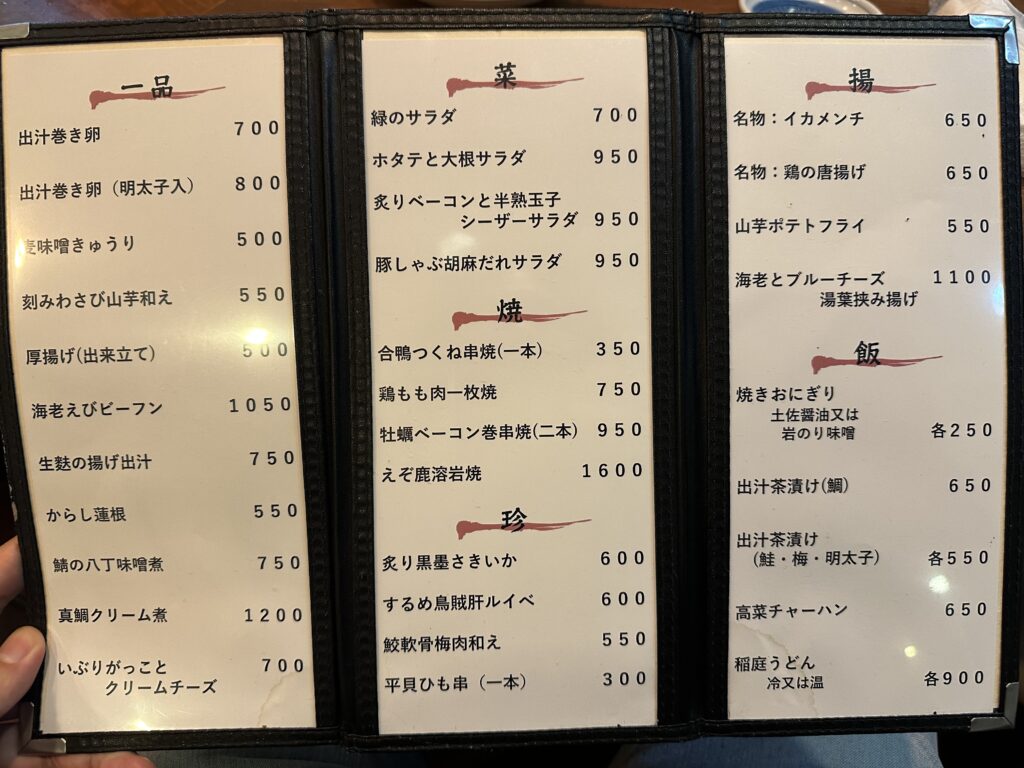 一品
出汁巻き卵 700
出汁巻き卵（明太子入） 800
麦味噌きゅうり 500
刻みわさび山芋和え 550
厚揚げ(出来立て) 500
海老えびビーフン 1050
生麩の揚げ出汁 750
からし蓮根 550
鯖の八丁味噌煮 750
真鯛クリーム煮 1200
いぶりがっこと 700
クリームチーズ
菜
緑のサラダ 700
ホタテと大根サラダ 950
炙りベーコンと半熟玉子
シーザーサラダ 950
豚しゃぶ胡麻だれサラダ 950
焼
合鴨つくね串焼(一本) 350
鶏もも肉一枚焼 750
牡蠣ベーコン巻串焼(二本) 950
えぞ鹿溶岩焼 1600
珍
炙り黒墨さきいか 600
するめ烏賊肝ルイベ 600
鮫軟骨梅肉和え 550
平貝ひも串（一本） 300
揚
名物：イカメンチ 650
名物：鶏の唐揚げ 650
山芋ポテトフライ 550
海老とブルーチーズ 1100
湯葉挟み揚げ
飯
焼きおにぎり
土佐醤油又は
岩のり味噌 各250
出汁茶漬け(鯛) 650
出汁茶漬け
（鮭・梅・明太子） 各550
高菜チャーハン 650
稲庭うどん
冷又は温 各900